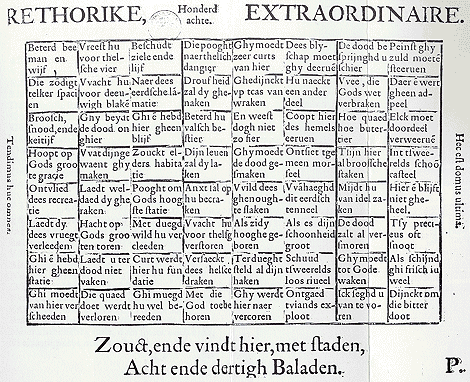 RETHORIKE,
Honderd
achte.
EXTRAORDINAIRE.
Beterd bee
man en
wijf,
Vreest hu
vor thel-
sche vier
Beschudt
ziele ende
lijf
Die pooght
naerthelich
dangier
Ghy moedt
zeer curts
van hier
Dees bly-
schap moet
ghy deerue
De dood be
springhd u
verstijf
Peinst ghy
zuld moete
steeruen
Die zodigt
telker spacy
en
Vvacht hu
voor deeu-
wigh blake
Naer dees
eerdsche la-
matie
Drouf heid
zal dy ghe-
naken
Ghedijnckt
vp tcas van
wraken
Hu naeckt
een ander
deel
Vvee, die
Gods wet
verbraken
Daer wert
gheen ad-
peel
Broosch,
snood, ende
keitijf
Gny beyat
de dood on
ghier
Ghi ē hebd
hier gheen
blijf
Beterd hu
valsch be-
stier
En weest
dogh niet
zo fier
Coopt hier
des hemels
eerueu
Hoe quaed
hoe buter-
tier
Elck moet
doerdeel
verweerue
Hoopt op
Gods groo
te gragie
Vvat dijnge
waent ghy
maken
Zouckt el-
ders habita
tie
Dijn leuen
zal dy la-
ken
Ghy moedt
de dood ge-
smaken
Ontsiet tge
meen mor-
seel
Tsijn hier
al broossche
staken
Int tsweer-
relds schoō
rasteel
Ontvlied
dees recrea-
tie
Laedt wel-
daed dy ghe
raken
Pooght om
Gods hoog
ste statie
Anxt tal op
hu recra-
ken
Vvild dees
ghenough-
te staken
Vvāhaeghd
dit eerdsch
tafereel
Mijdt hu
van idel za-
ken
Hier ē blijft
niet ghe-
heel.
Laedt dy
dees vruegt
verleeden
Hacht op
Gods groo
ten toren
Met duegd
wild hu ver
cleeden
Vvacht hu
voor helsch
storen
Als zidy
hooghe ge-
boren
Als es dijn
schoonheid
groot
De dood
zalt al ver-
smoren
Tsy preci-
eus oft
snoot
Ghi ē hebd
hier gheen
statie
Laedt u ter
dood niet
vaken
Curt werdt
hier hu fun
datie
Verfaeckt
dees helsche
draken
Ter dueght
steld al dijn
haken
Schuud
tsweerelds
loos riueel
Ghy moedt
tot Gode
waken
Als schijnd
ghi frisch iu
weel
Ghi moedt
van hier ver
scheeden
Die quaed
doet werdt
verloren
Ghi muegd
hu wel be-
reeden
Met die
God toebe
horen
Ghy werdt
hier naer
vercoren
Ontgaed
tviande ex-
ploot
Ick segh d u
van te vo-
ren
Dijnckt om
die bitter
doot
Tendimus huc omnes.
Hæc est domus ultima.
Zouct, ende vindt hier, met staden,
Acht ende dertigh Baladen.
P.